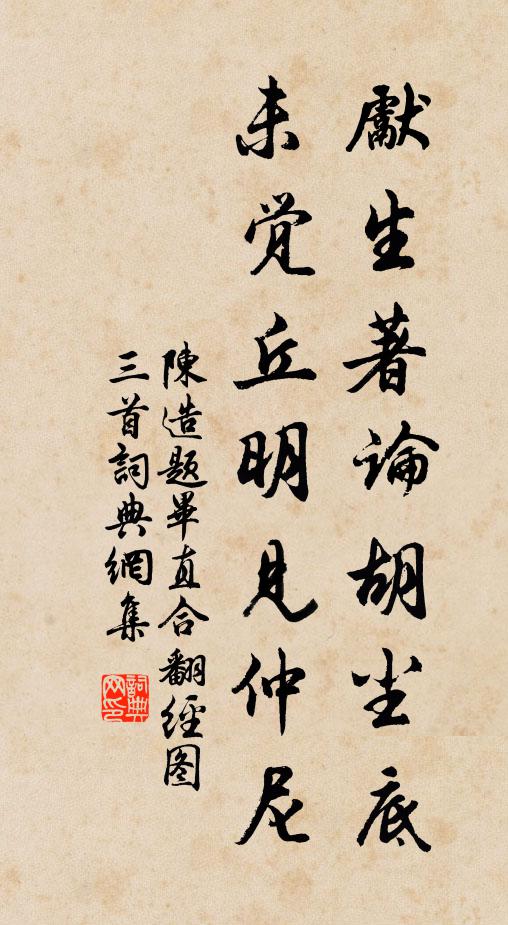 獻生著論胡尘底
未觉丘明見仲尼
陳造題畢直合翻經图
三首詞典網集
詞典网印